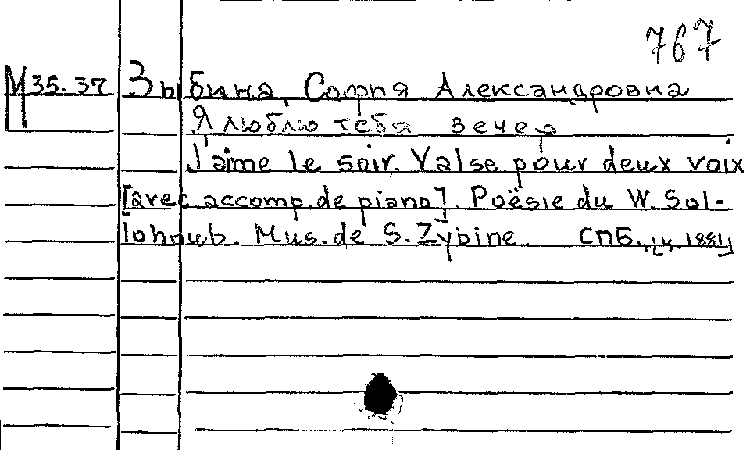 767
М 35.37 Зыбина, София Александровна
Я люблю тебя вечер
J'aime le soir. Valse pour deux voix
[avec accomp. de piano]. Poësie du W. Sol-
lohoub. Mus. de S. Zybine. СПБ.,